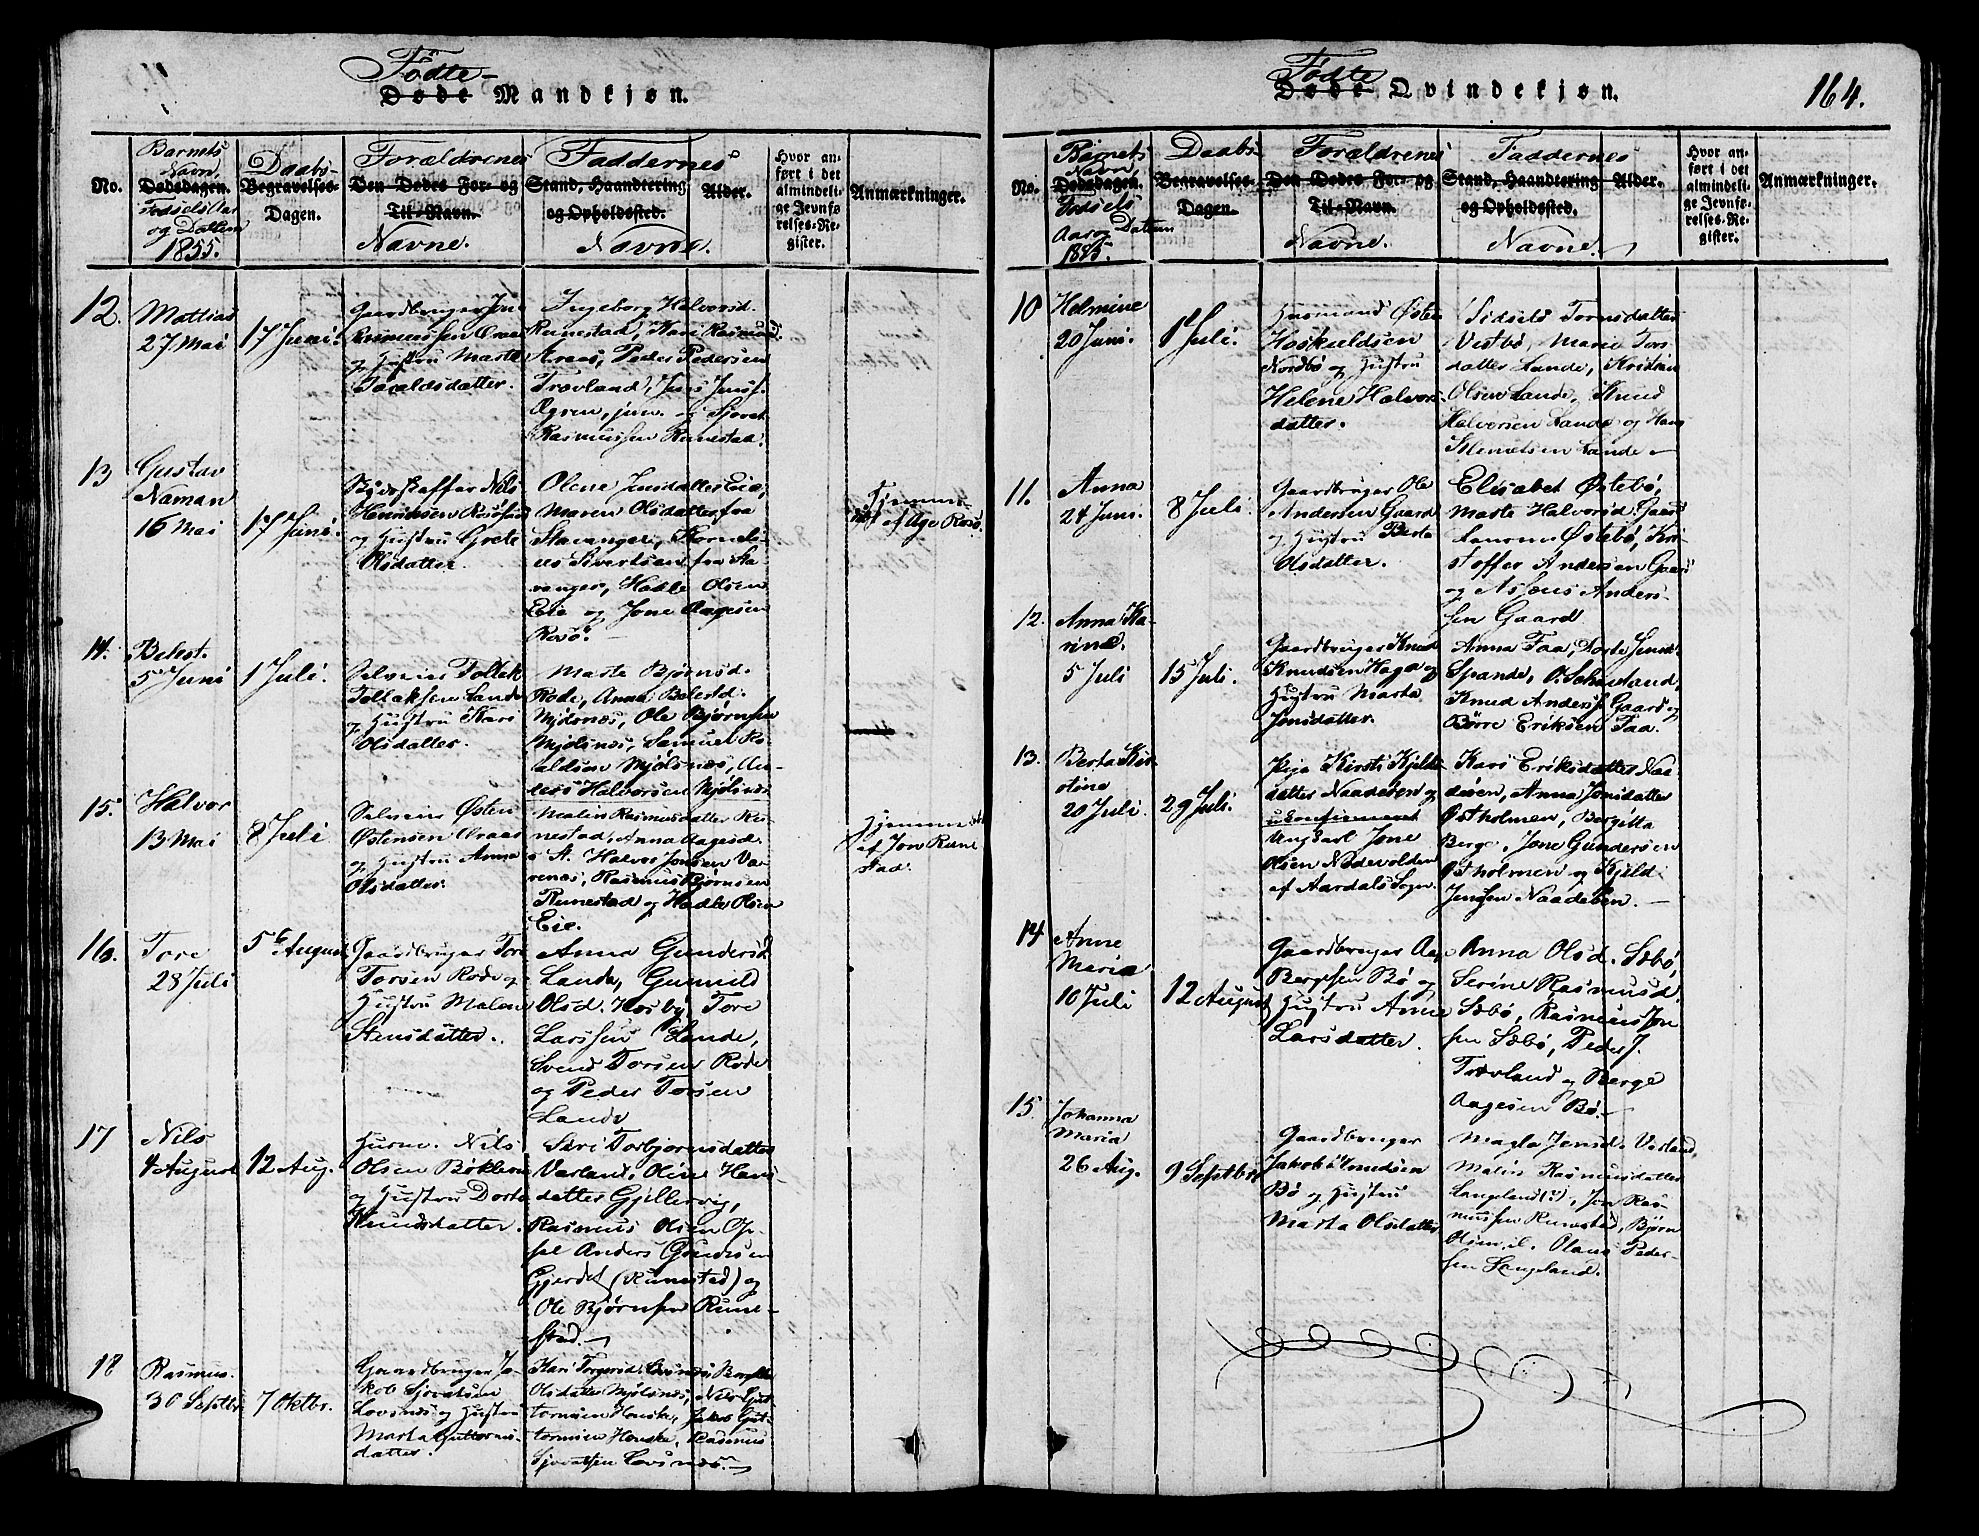 Födte
Döde Mandkjön.
No.
Barnets
Navn,
Dødsdagen.
Fødsels Aar
og Datum
1855.
Daabs-
Begravelses-
Dagen.
Forældrenes
Den Dødes For- og
Til-Navn.
Navne.
Faddernes
Stand, Haandtering
og Opholdssted.
Navne.
Alder.
Hvor an-
ført i det
almindeli-
ge Jevnfø-
relses-Re-
gister.
Anmærkninger.
12.
Mattias
27 Mai
17 Juni.
Gaardbruger Jone
Rasmussen Øraas
og Hustru Marte
Toraldsdatter.
Ingeborg Halvorsd.
Runestad, Kari Rasmusd.
Araas, Peder Pedersen
Trovland, Jens Jensf.
Ogren, jun. og Sjovat
Rasmussen Runestad.
13
Gustav
Naman
16 Mai
17 Juni.
Bödtkaffer Nils
Henriksen Rosö
og Hustru Grete
Olsdatter.
Olene Jensdatter Eie,
Maren Olsdatter fra
Stavanger, Kornels-
ius Sivertsen fra Sta-
vanger, Hadle Olsen
Eie og Jone Aagesen
Rosö.
Hjemme-
døbt af Age Rosö.
14.
Betest.
5 Juni
1 Juli.
Selveier Tollak
Tollaksen Lande
og Hustru Kari
Olsdatter.
Marte Bjørnsd.
Rode, Anna Betestd.
Mjölsnæs, Ole Bjørnsen
Mjölsnæs, Samuel Ro-
aldsen Mjölsnæs, An-
ders Halvorsen Mjölsnæs
15.
Halvor
13 Mai
8 Juli
Selveier Østen
Østensen Øraas
og Hustru Anna
Olsdatter.
Malin Rasmusdatter Ru-
nestad, Anna Aagesd.
s. A. Halvor Jonsen Va-
renæs, Rasmus Bjørnsen
Runestad og Hadle Olsen
Eie.
Hjemmedøbt
af Jon Rune-
stad.
16.
Tore
28 Juli
5te August
Gaardbruger Tore
Torsen Rode og
Hustru Malene
Stensdatter.
Anna Gundersd.
Lande, Gunnild
Olsd. Hosby, Tore
Larssen Lande,
Svend Torsen Rode
og Peder Torsen
Lande
17
Nils
4 August
12 Aug.
Husm. Nils
Olsen Böklevn
og Hustru Dorte
Knudsdatter.
Siri Torbjørnsdatter
Varland, Oline Hans-
datter Gjillervig,
Rasmus Olsen Op-
sal Anders Gundersen
Gjerdet (Runestad) og
Ole Bjørnsen Rune-
stad.
18
Rasmus.
30 Septbr.
7 Oktbr.
Gaardbruger Ja-
kob Sjovatsen
Lovsnæs og Hustru
Marta Guttorms-
datter.
Kari Torgersd.
Olsdatter Mjölsnæs, Nils Gut-
tormsen Honske, Jakob Gut-
tormsen Honske, Rasmus
Sjovatsen Lovsnæs.
Födte
Döde Qvindekjön.
164.
No.
Barnets
Navn
Dødsdagen.
Fødsels
Aar og Datum
1855.
Daabs-
Begravelses-
Dagen.
Forældrenes
Den Dødes For- og
Til-Navn.
Navne.
Faddernes
Stand, Haandtering
og Opholdssted.
Navne.
Alder.
Hvor an-
ført i det
almindeli-
ge Jevnfø-
relses-Re-
gister.
Anmærkninger.
10
Helmine
20 Juni.
1 Juli.
Husmand Østen
Hoskuldsen
Nordbø og Hustru
Helene Halvors-
datter.
Sidsels Tornsdatter
Vestbö, Marie Tors-
datter Lande, Kristian
Olsen Lande, Knud
Halvorsen Lande og Hans
Klemetsen Lande.
11.
Anna
24 Juni.
8 Juli.
Gaardbruger Ole
Andersen Gaard
og Hustru Berta
Olsdatter.
Elisabet Østebö,
Marte Halvorsd. Gaard
Østebö, Kri-
stoffer Andersen Gaard
og Asseus Anders-
sen Gaard
12.
Anna Ka-
rine.
5 Juli
15 Juli.
Gaardbruger Knud
Knudsen Haga og
Hustru Marta
Jonsdatter.
Anna Faa, Dorte
Spande, O. Schaneland,
Knud Andersf. Gaard og
Börre Eriksen Faa.
13.
Berta Kir-
stine
20 Juli.
29 Juli.
Pige Kirsti Kjelds-
datter Naadeen og
ukonfirmeret
Ungkarl Jone
Olsen Nedevolden
af Aardals Sogn.
Kari Eriksdatter Naa-
deen, Anna Jonsdatter
Østholmen, Bergitta
Berge, Jone Gundersen
Østholmen og Kjeld
Jensen Naadeen.
14
Anne
Maria
10 Juli
12 August
Gaardbruger Aage
Bergesen Bø og
Hustru Anne
Larsdatter.
Anna Olsd. Sæbö,
Serine Rasmusd.
Sæbö, Rasmus Jon-
sen Sæbö, Peder J.
Trovland og Berge
Aagesen Bö.
15.
Johanna
Maria
26 Aug.
9 Septbr.
Gaardbruger
Jakob Knudsen
Bö og Hustru
Marta Olsdatter
Magla Jensd. Varland,
Malin Rasmusdatter
Langeland, Jon Ras-
mussen Runestad, Björn
Olsen il. Olaus Peder-
sen Langeland.